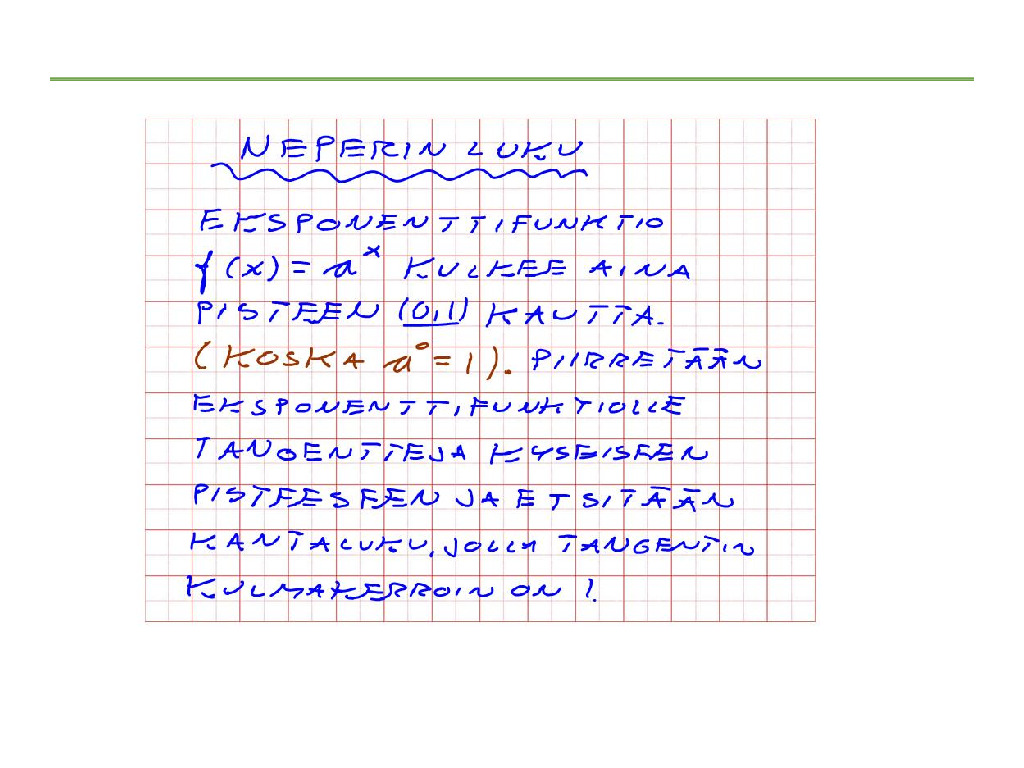 NEPERIN LUKU
EKSPONENTTIFUNKTIO
f(x) = a^x KULKEE AINA
PISTEEN (0,1) KAUTTA.
(KOSKA a^0 = 1). PIIRRETÄÄN
EKSPONENTTIFUNKTIOLLE
TANGENTTEJA KYSEISEEN
PISTEESEEN JA ETSITÄÄN
KANTALUKU, JOLLA TANGENTIN
KULMAKERROIN ON 1.